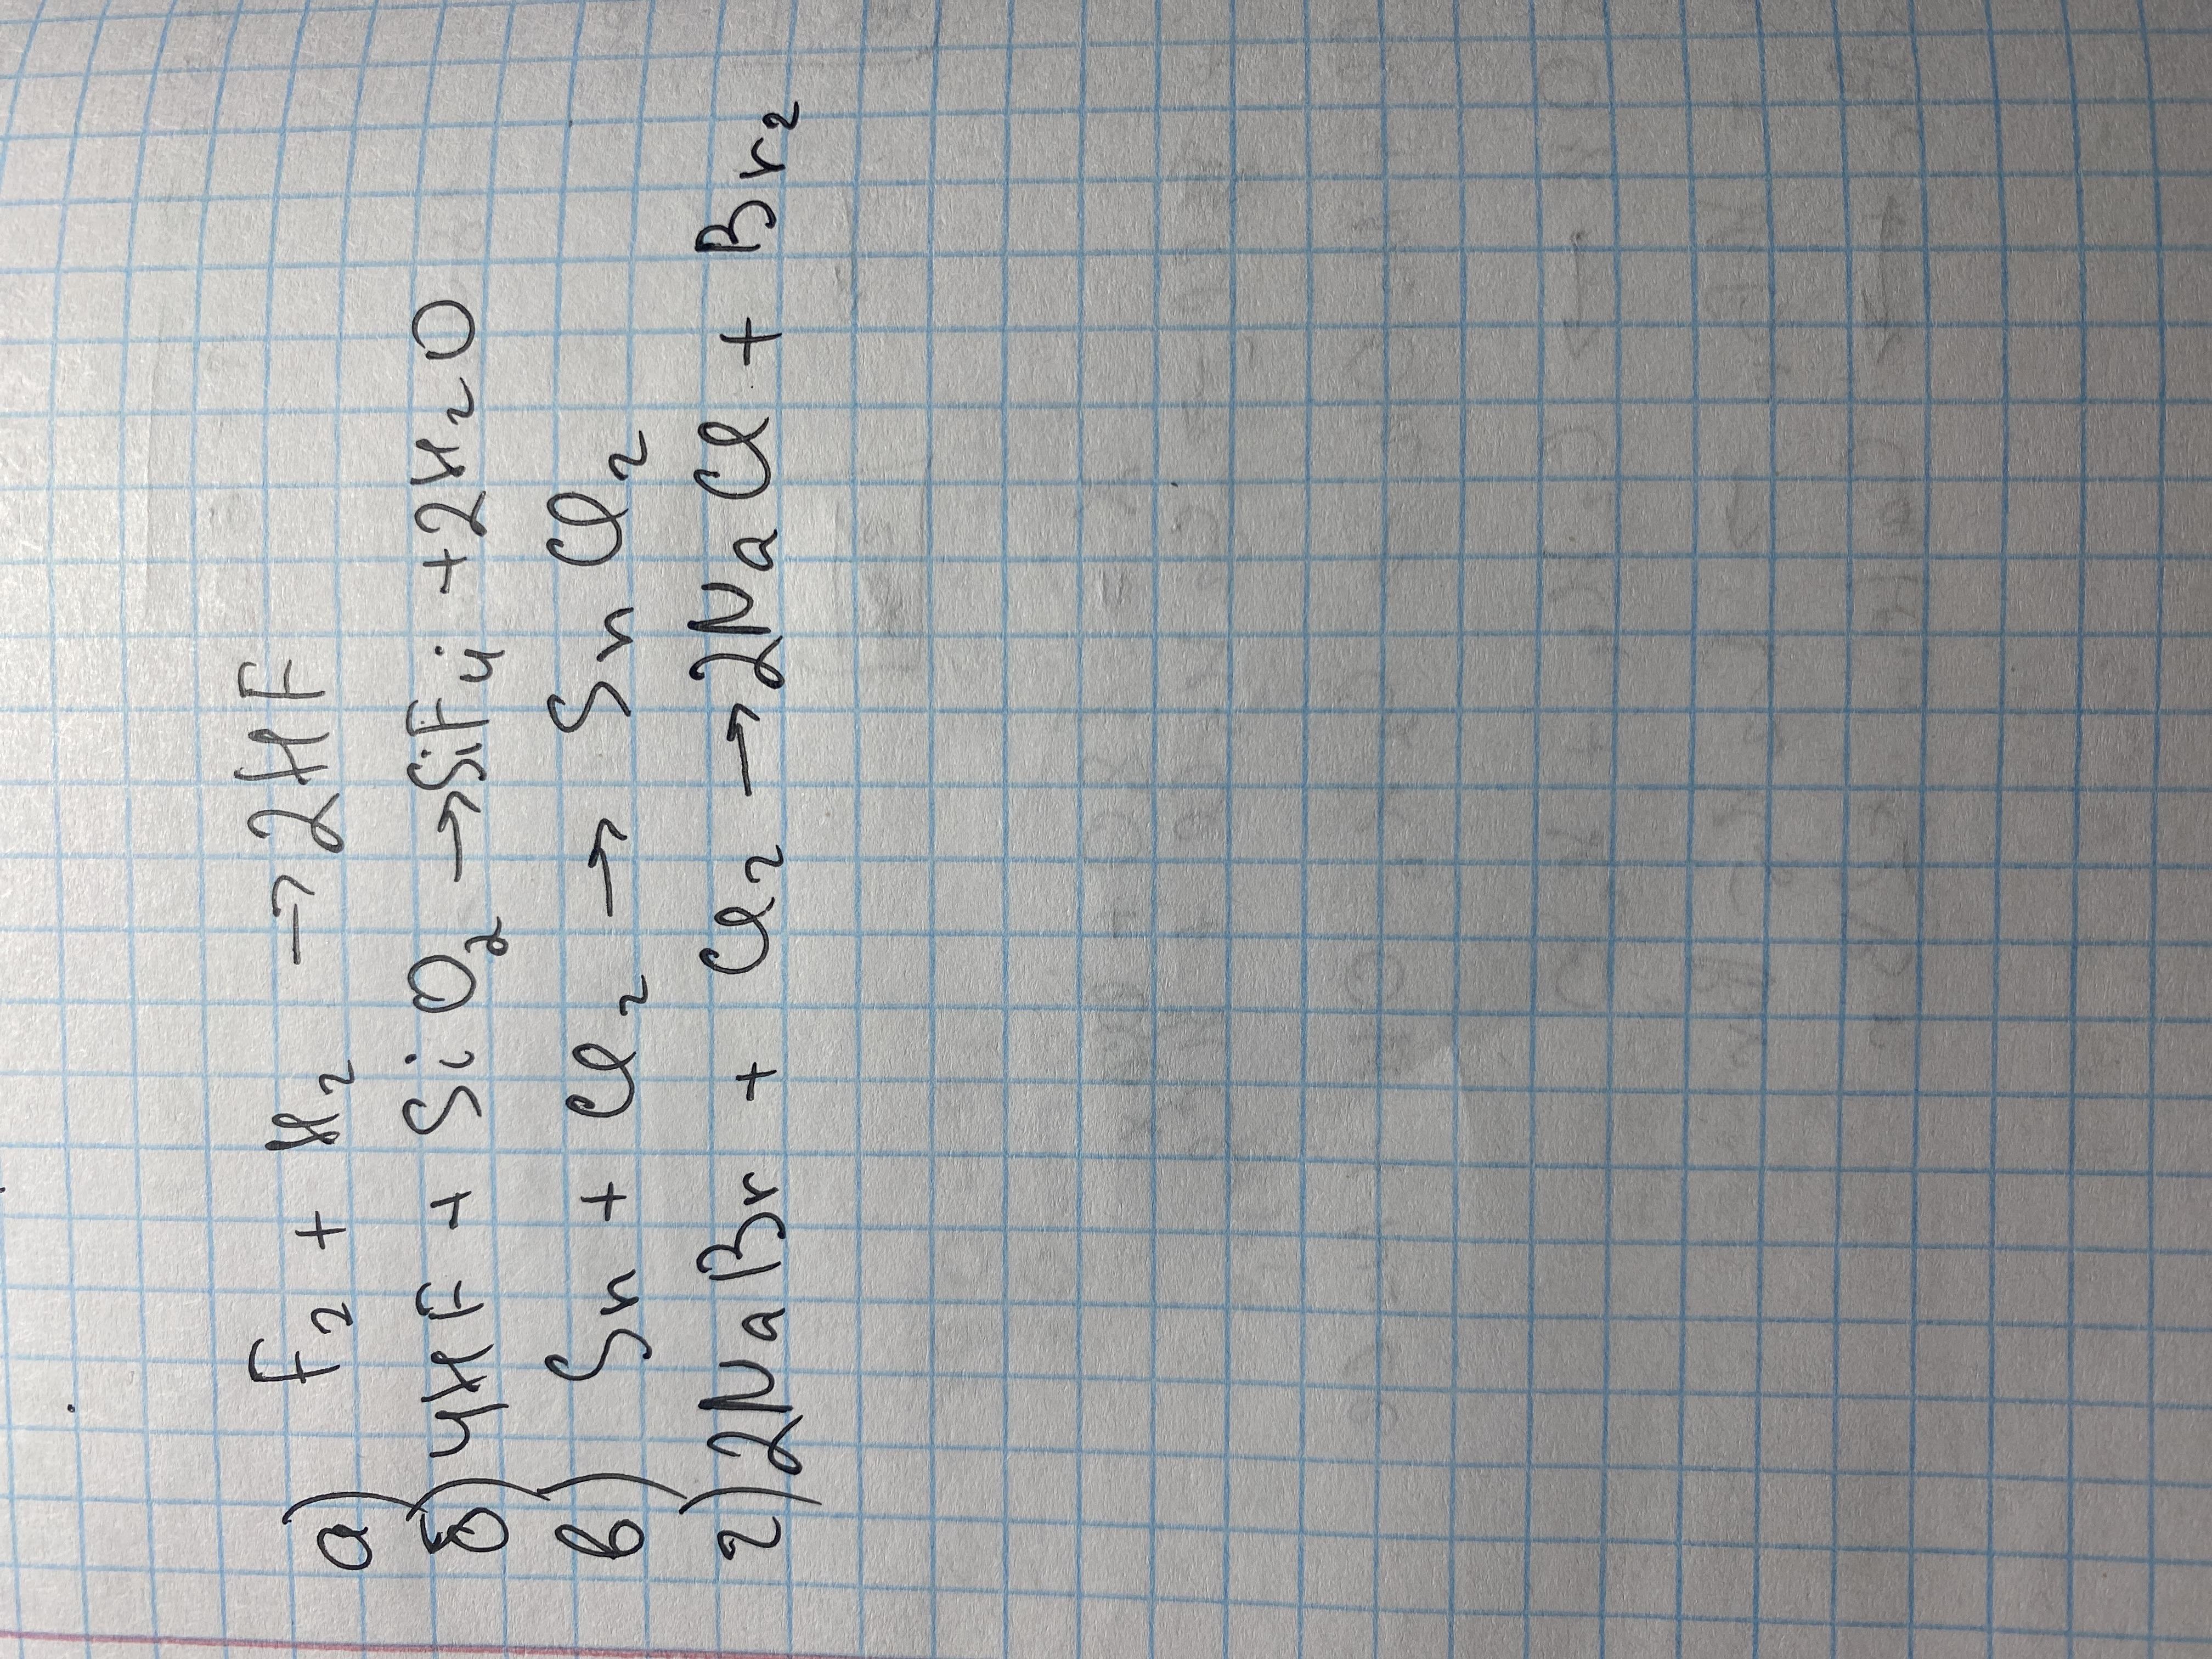 а) F₂ + H₂ → 2HF
б) 4HF + SiO₂ → SiF₄ + 2H₂O
в) Sn + Cl₂ → SnCl₂
г) 2NaBr + Cl₂ → 2NaCl + Br₂